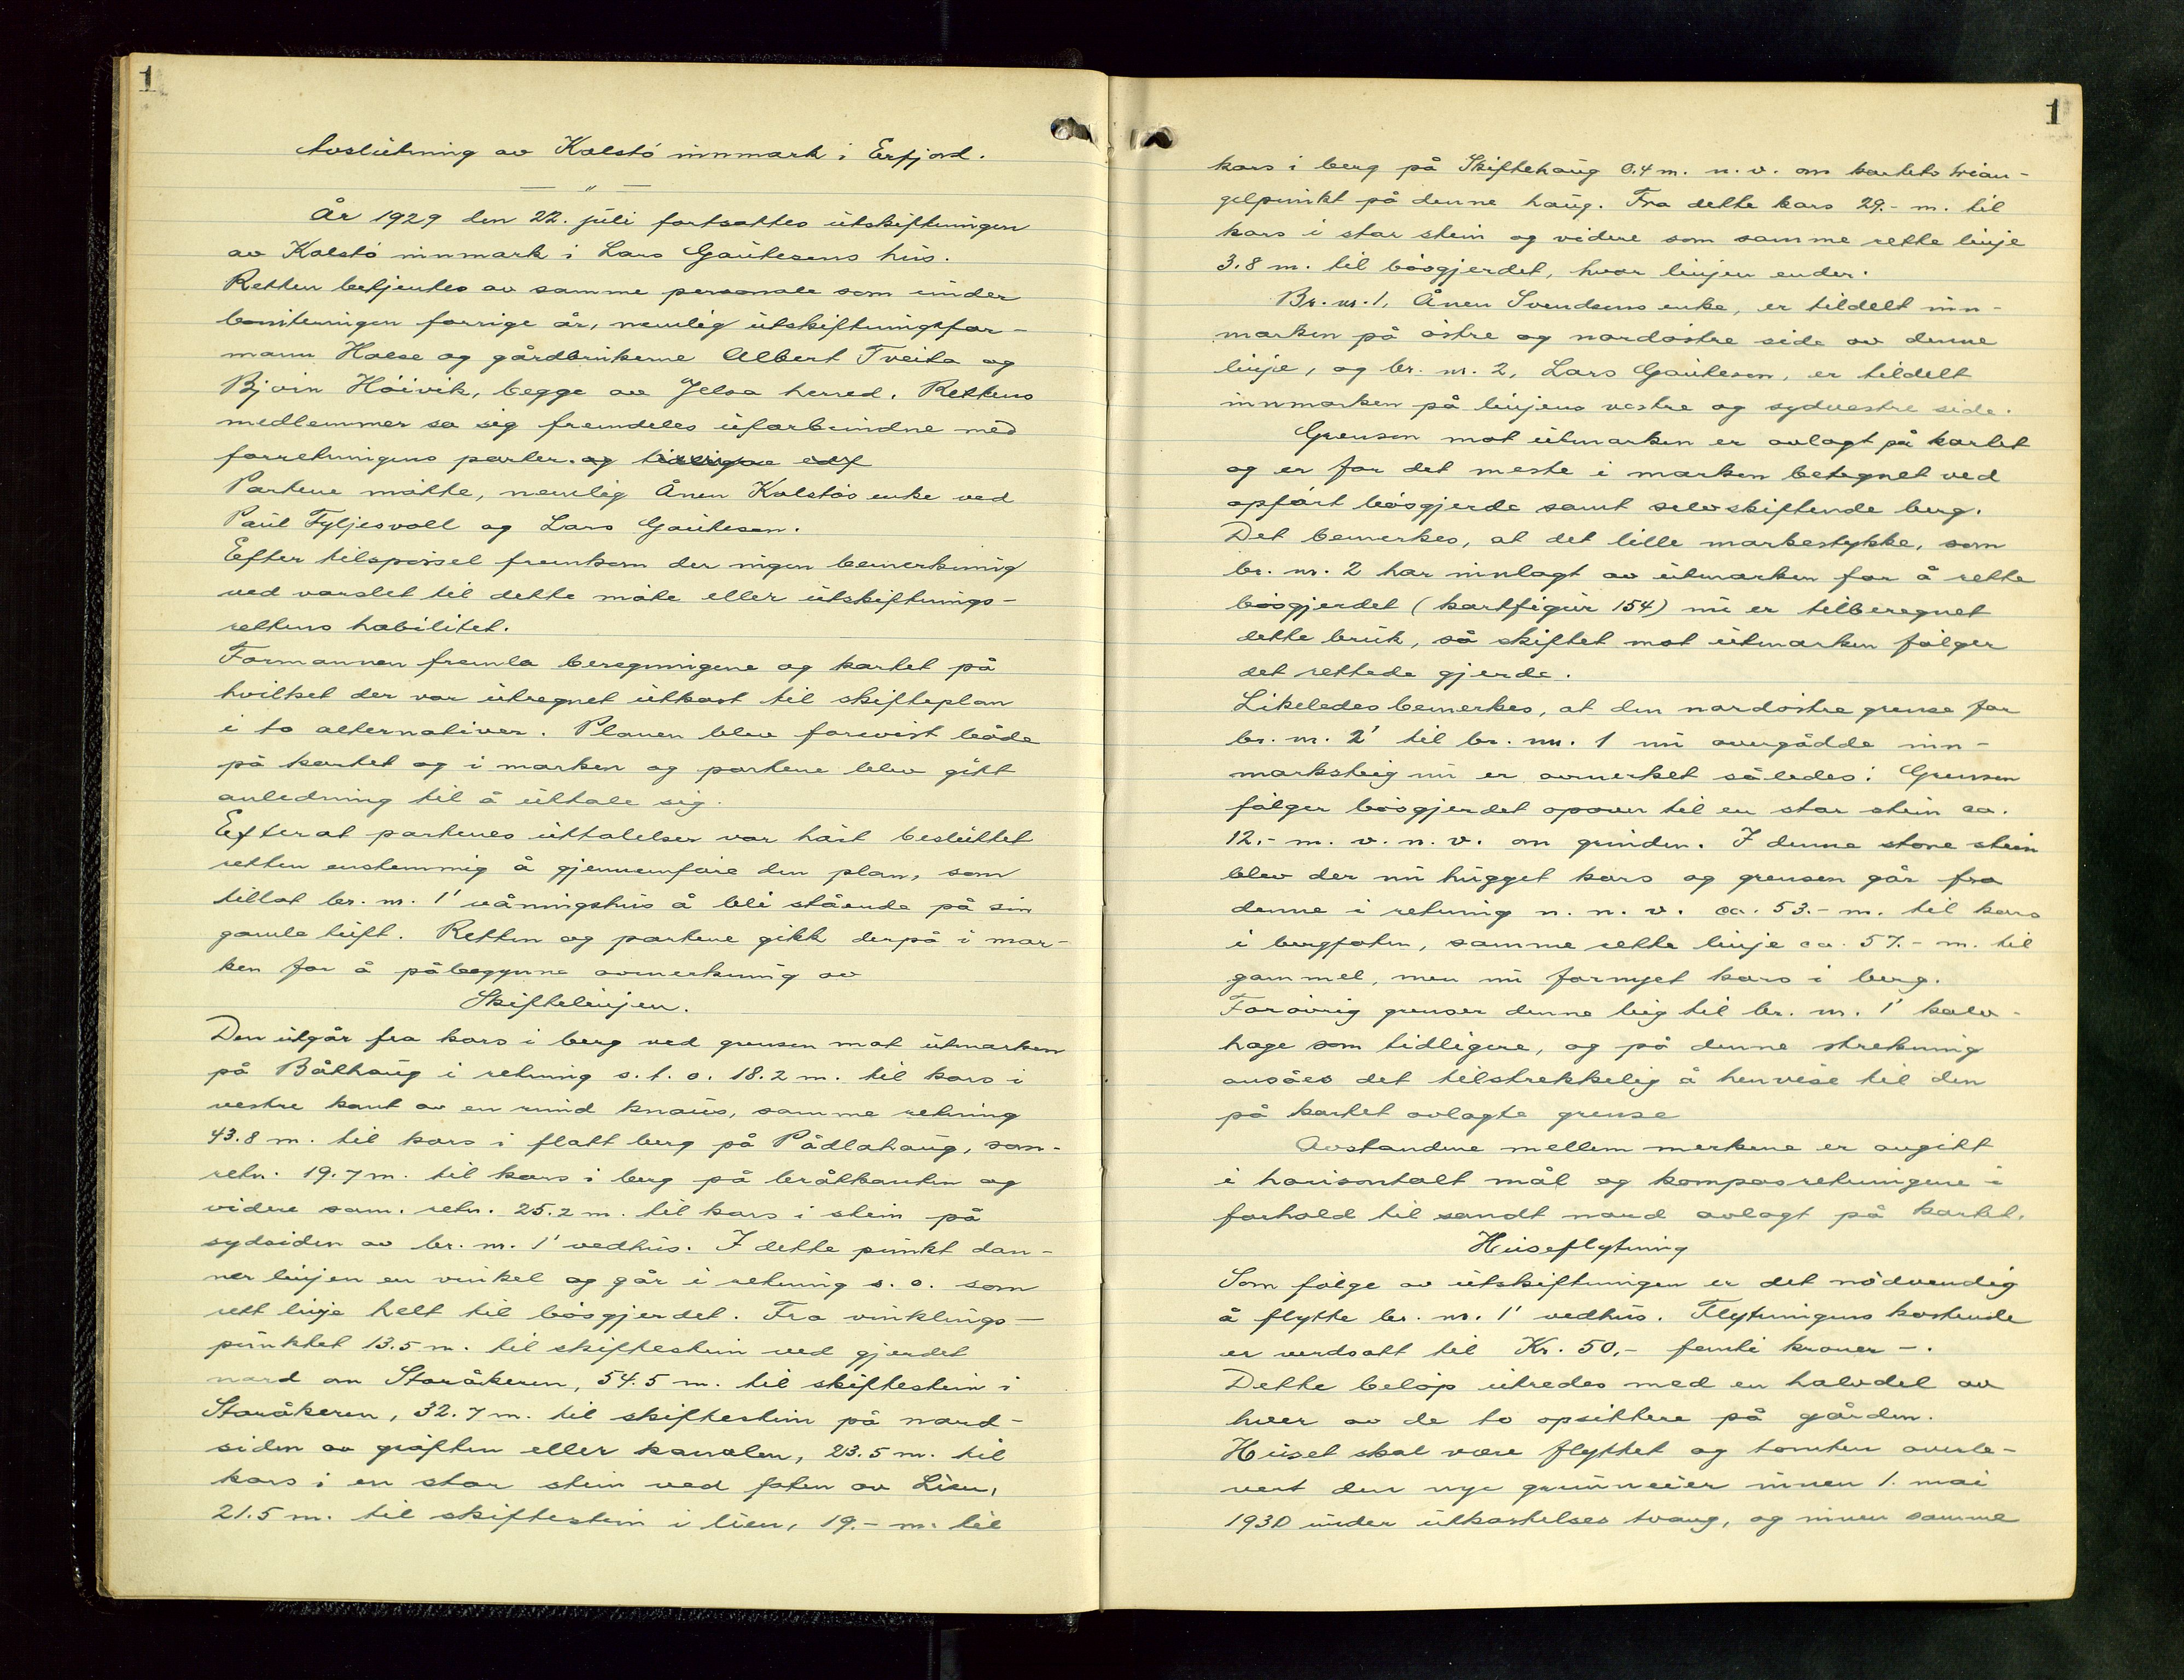 1
Avslutning av Kolstö innmark i Erfjord.
— " —
År 1929 den 22. juli fortsattes utskiftningen
av Kolstö innmark i Lars Gautesens hus.
Retten betjentes av samme personale som under
boniteringen forrige år, nemlig utskiftningsfor-
mann Hoese og gårdbrukerne Albert Tveita og
Bjoin Höivik, begge av Jelsa herred. Rettens
medlemmer sa sig fremdeles uforbundne med
forretningens parter. og
Partene mötte, nemlig Ånen Kolstös enke ved
Paul Fyljesvoll og Lars Gautesen.
Eefter tilspörsel fremkom der ingen bemerkning
ved varslet til dette möte eller utskiftnings-
rettens habilitet.
Formannen fremla beregningene og kartet på
hvilket der var utregnet utkast til skifteplan
i to alternativer. Planen blev forevist både
på kartet og i marken og partene blev gitt
anledning til å uttale sig.
Efterat partenes uttalelser var hört besluttet
retten enstemmig å gjennemföre den plan, som
tillot br. nr. 1' våningshus å bli stående på sin
gamle tuft. Retten og partene gikk derpå i mar-
ken for å påbegynne avmerkning av
Skiftelinjen.
Den utgår fra kors i berg ved grensen mot utmarken
på Bålhaug i retning s.t.o. 18.2 m. til kors i
vestre kant av en rund knaus, samme retning
43.8 m. til kors i flatt berg på Pådlahaug, sam-
retn. 19.7 m. til kors i berg på bråtkanten og
videre sam. retn. 25.2 m. til kors i stein på
sydsiden av br. nr. 1' vedhus. I dette punkt dan-
ner linjen en vinkel og går i retning s.o. som
rett linje helt til bösgjerdet. Fra vinklings-
punktet 13.5 m. til skiftestein ved gjerdet
nord om Storåkeren, 54.5 m. til skiftestein i
Storåkeren, 32.7 m. til skiftestein på nord-
siden av gröften eller kanalen, 23.5 m. til
kors i en stor stein ved foten av Lien,
21.5 m. til skiftestein i lien, 19.- m. til
1
kors i berg på Skiftehaug 0.4 m. n.v. om kartets trian-
gelpunkt på denne haug. Fra dette kors 29.- m. til
kors i stor stein og videre som samme rette linje
3.8 m. til bösgjerdet, hvor linjen ender.
Br. nr. 1, Ånen Svendsens enke, er tildelt inn-
marken på östre og nordöstre side av denne
linje, og br. nr. 2, Lars Gautesen, er tildelt
innmarken på linjens vestre og sydvestre side.
Grensen mot utmarken er avlagt på kartet
og er for det meste i marken betegnet ved
opfört bösgjerde samt selvskiftende berg.
Det bemerkes, at det lille markestykke, som
br. nr. 2 har innlagt av utmarken for å rette
bösgjerdet (kartfigur 154) nu er tilberegnet
dette bruk, så skiftet mot utmarken fölger
det rettede gjerde.
Likeledes bemerkes, at den nordöstre grense for
br. nr. 2' til br. nr. 1 nu overgådde inn-
marksteig nu er avmerket således: Grensen
fölger bösgjerdet opover til en stor stein ca.
12.- m. v.n.v. om grinden. I denne store stein
blev der nu hugget kors og grensen går fra
denne i retning n.n.v. ca. 53.- m. til kors
i bergfoten, samme rette linje ca. 57.- m. til
gammel, men nu fornyet kors i berg.
Forövrig grenser denne teig til br. nr. 1' kalv-
hage som tidligere, og på denne strekning
ansåes det tilstrekkelig å henvise til den
på kartet avlagte grense
Avstandene mellem merkene er avgitt
i horisontalt mål og kompasretningene i
forhold til sandt nord avlagt på kartet.
Huseflytning
Som fölge av utskiftningen er det nödvendig
å flytte br. nr. 1' vedhus. Flytningens kostende
er verdsatt til Kr. 50,- femti kroner -.
Dette belöp utredes med en halvdel av
hver av de to opsittere på gården.
Huset skal være flyttet og tomten overle-
vert den nye grunneier innen 1. mai
1930 under utkastelses tvang, og innen samme